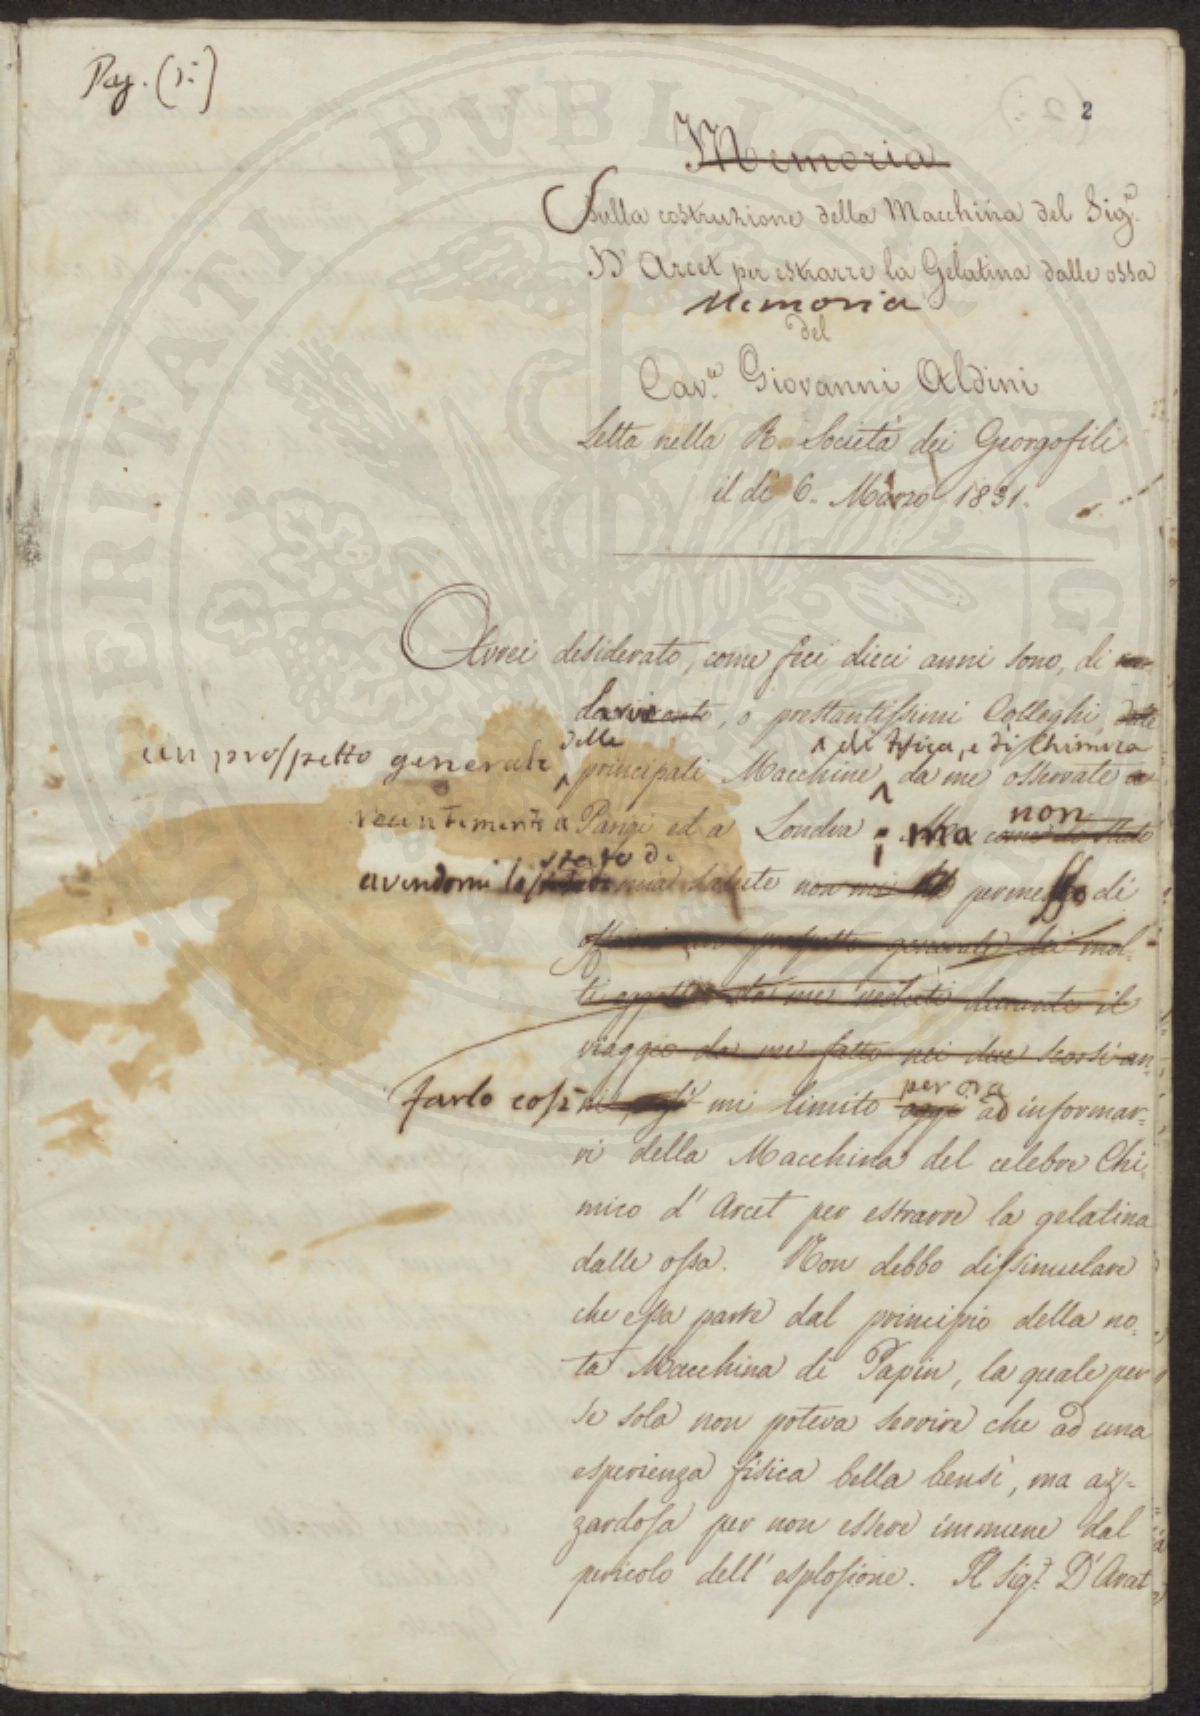 Pag. (1:)
2
Memoria
Sulla costruzione della Macchina del Sig.e
D'Arcet per estrarre la Gelatina dalle ossa
Memoria
del
Cav.e Giovanni Aldini
Letta nella R. Società dei Georgofili
il dì 6. Marzo 1831.
Avrei desiderato, come feci dieci anni sono, di
darvi, o prestantissimi Colleghi,
un prospetto generale delle principali Macchine di Fisica, e di Chimica da me osservate a
recentemente a Parigi ed a Londra; ma non
avendomi lo stato di mia salute non mi permesso di
offrirvi un prospetto generale dei mol-
ti oggetti da me veduti durante il
viaggio da me fatto nei due scorsi an-
farlo così ni, mi limito per ora oggi ad informar-
vi della Macchina del celebre Chi-
mico d'Arcet per estrarre la gelatina
dalle ossa. Non debbo dissimulare
che essa parte dal principio della no-
ta Macchina di Papin, la quale per
se sola non poteva servire che ad una
esperienza fisica bella bensì, ma az-
zardosa per non essere immune dal
pericolo dell'esplosione. Il Sig.r D'Arcet
PVBLICAE
PROSPERITATI
AVG